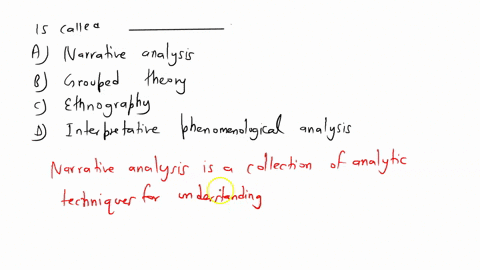 Is called ____________
A) Narrative analysis
B) Grouped theory
C) Ethnography
D) Interpretative phenomenological analysis
Narrative analysis is a collection of analytic
techniques for understanding